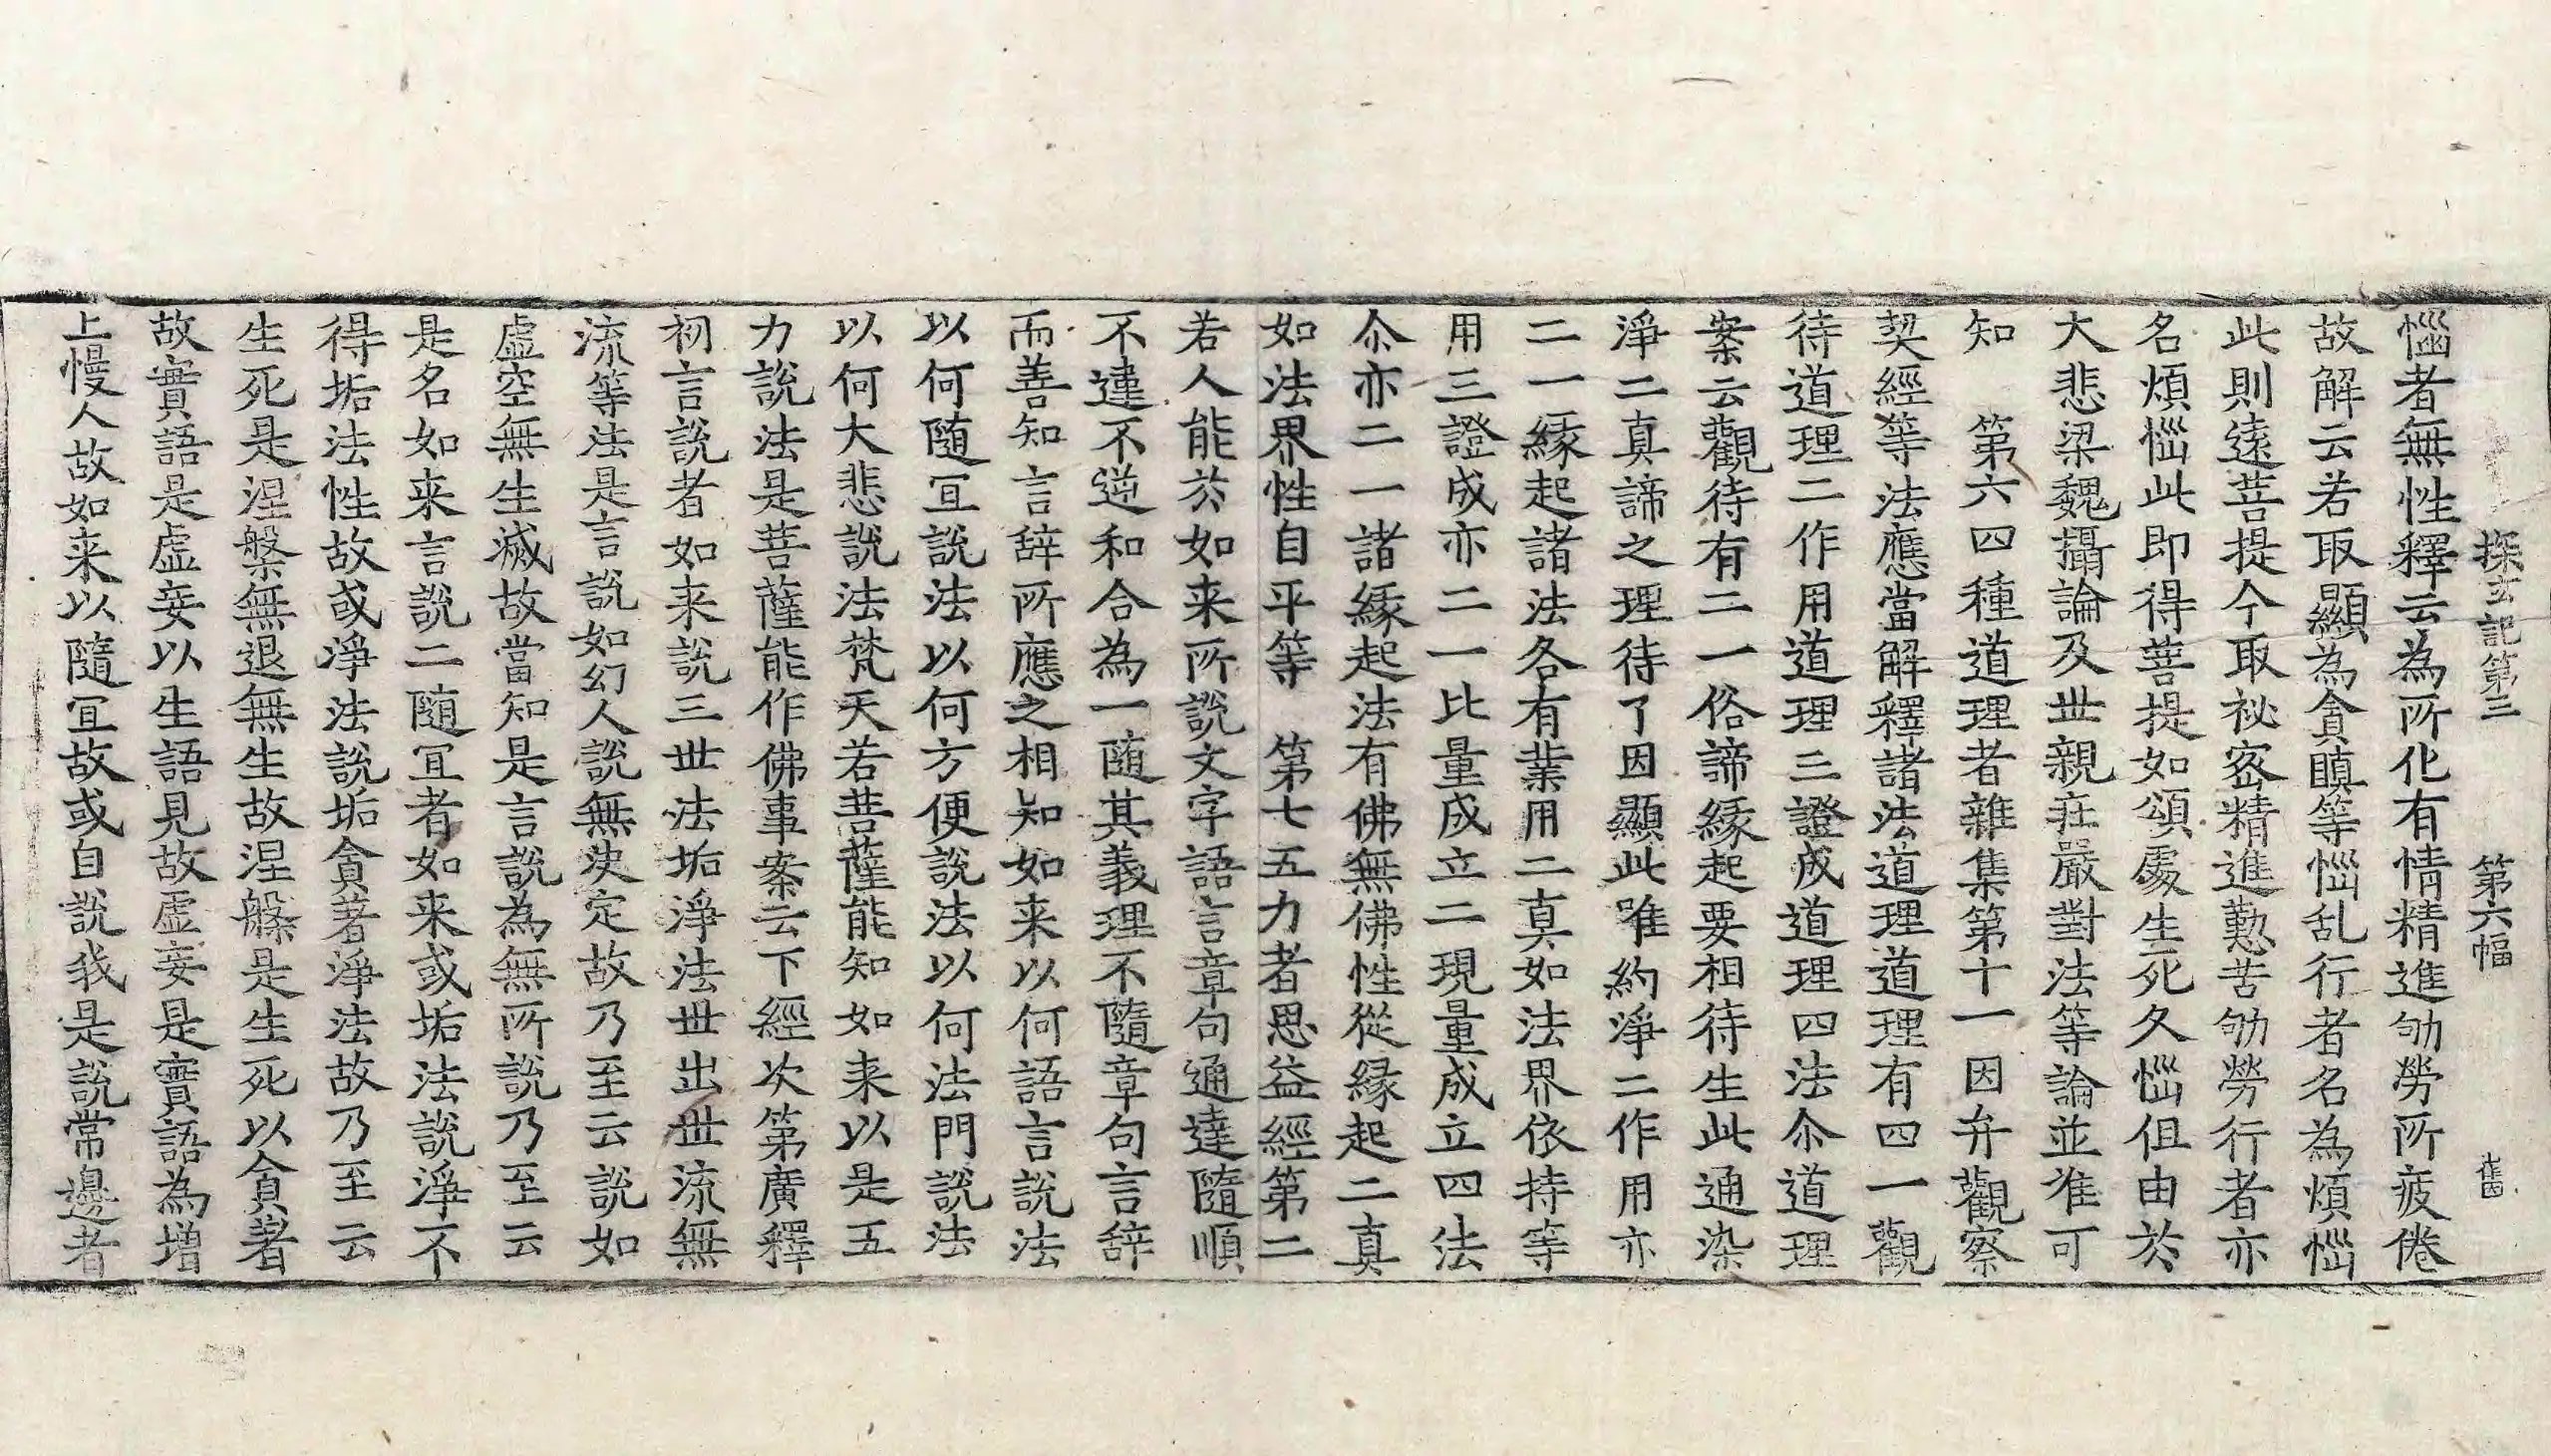 探玄記第三 第六幅
惱者無性釋云為所化有情精進劬勞所疲倦
故解云若取顯為貪瞋等惱乱行者名為煩惱
此則遠菩提今取祕密精進懃苦劬勞行者亦
名煩惱此即得菩提如頌處生死久惱但由於
大悲梁魏攝論及世親莊嚴對法等論並准可
知 第六四種道理者雜集第十一因弁觀察
契經等法應當解釋諸法道理道理有四一觀
待道理二作用道理三證成道理四法尒道理
案云觀待有二一俗諦緣起要相待生此通染
淨二真諦之理待了因顯此唯約淨二作用亦
二一緣起諸法各有業用二真如法界依持等
用三證成亦二一比量成立二現量成立四法
尒亦二一諸緣起法有佛無佛性從緣起二真
如法界性自平等 第七五力者思益經第二
若人能於如来所說文字語言章句通達隨順
不違不逆和合為一隨其義理不隨章句言辞
而善知言辞所應之相知如来以何語言說法
以何隨冝說法以何方便說法以何法門說法
以何大悲說法梵天若菩薩能知如来以是五
力說法是菩薩能作佛事案云下經次第廣釋
初言說者如来說三世法垢淨法世出世流無
流等法是言說如幻人說無決定故乃至云說如
虛空無生滅故當知是言說為無所說乃至云
是名如来言說二隨冝者如来或垢法說淨不
得垢法性故或淨法說垢貪著淨法故乃至云
生死是涅槃無退無生故涅槃是生死以貪著
故實語是虛妄以生語見故虛妄是實語為增
上慢人故如来以隨冝故或自說我是說常邊者